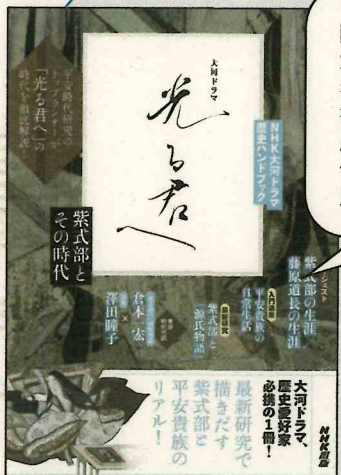 大河ドラマ
光る君へ
NHK大河ドラマ
歴史ハンドブック
平安時代研究の
トップランナーが
「光る君へ」の
時代を徹底解説
紫式部と
その時代
紫式部の生涯
藤原道長の生涯
平安貴族の
日常生活
紫式部と
『源氏物語』
倉本一宏
澤田瞳子
大河ドラマ、
歴史愛好家
必携の1冊!
最新研究で
描きだす
紫式部と
平安貴族の
リアル!
NHK出版